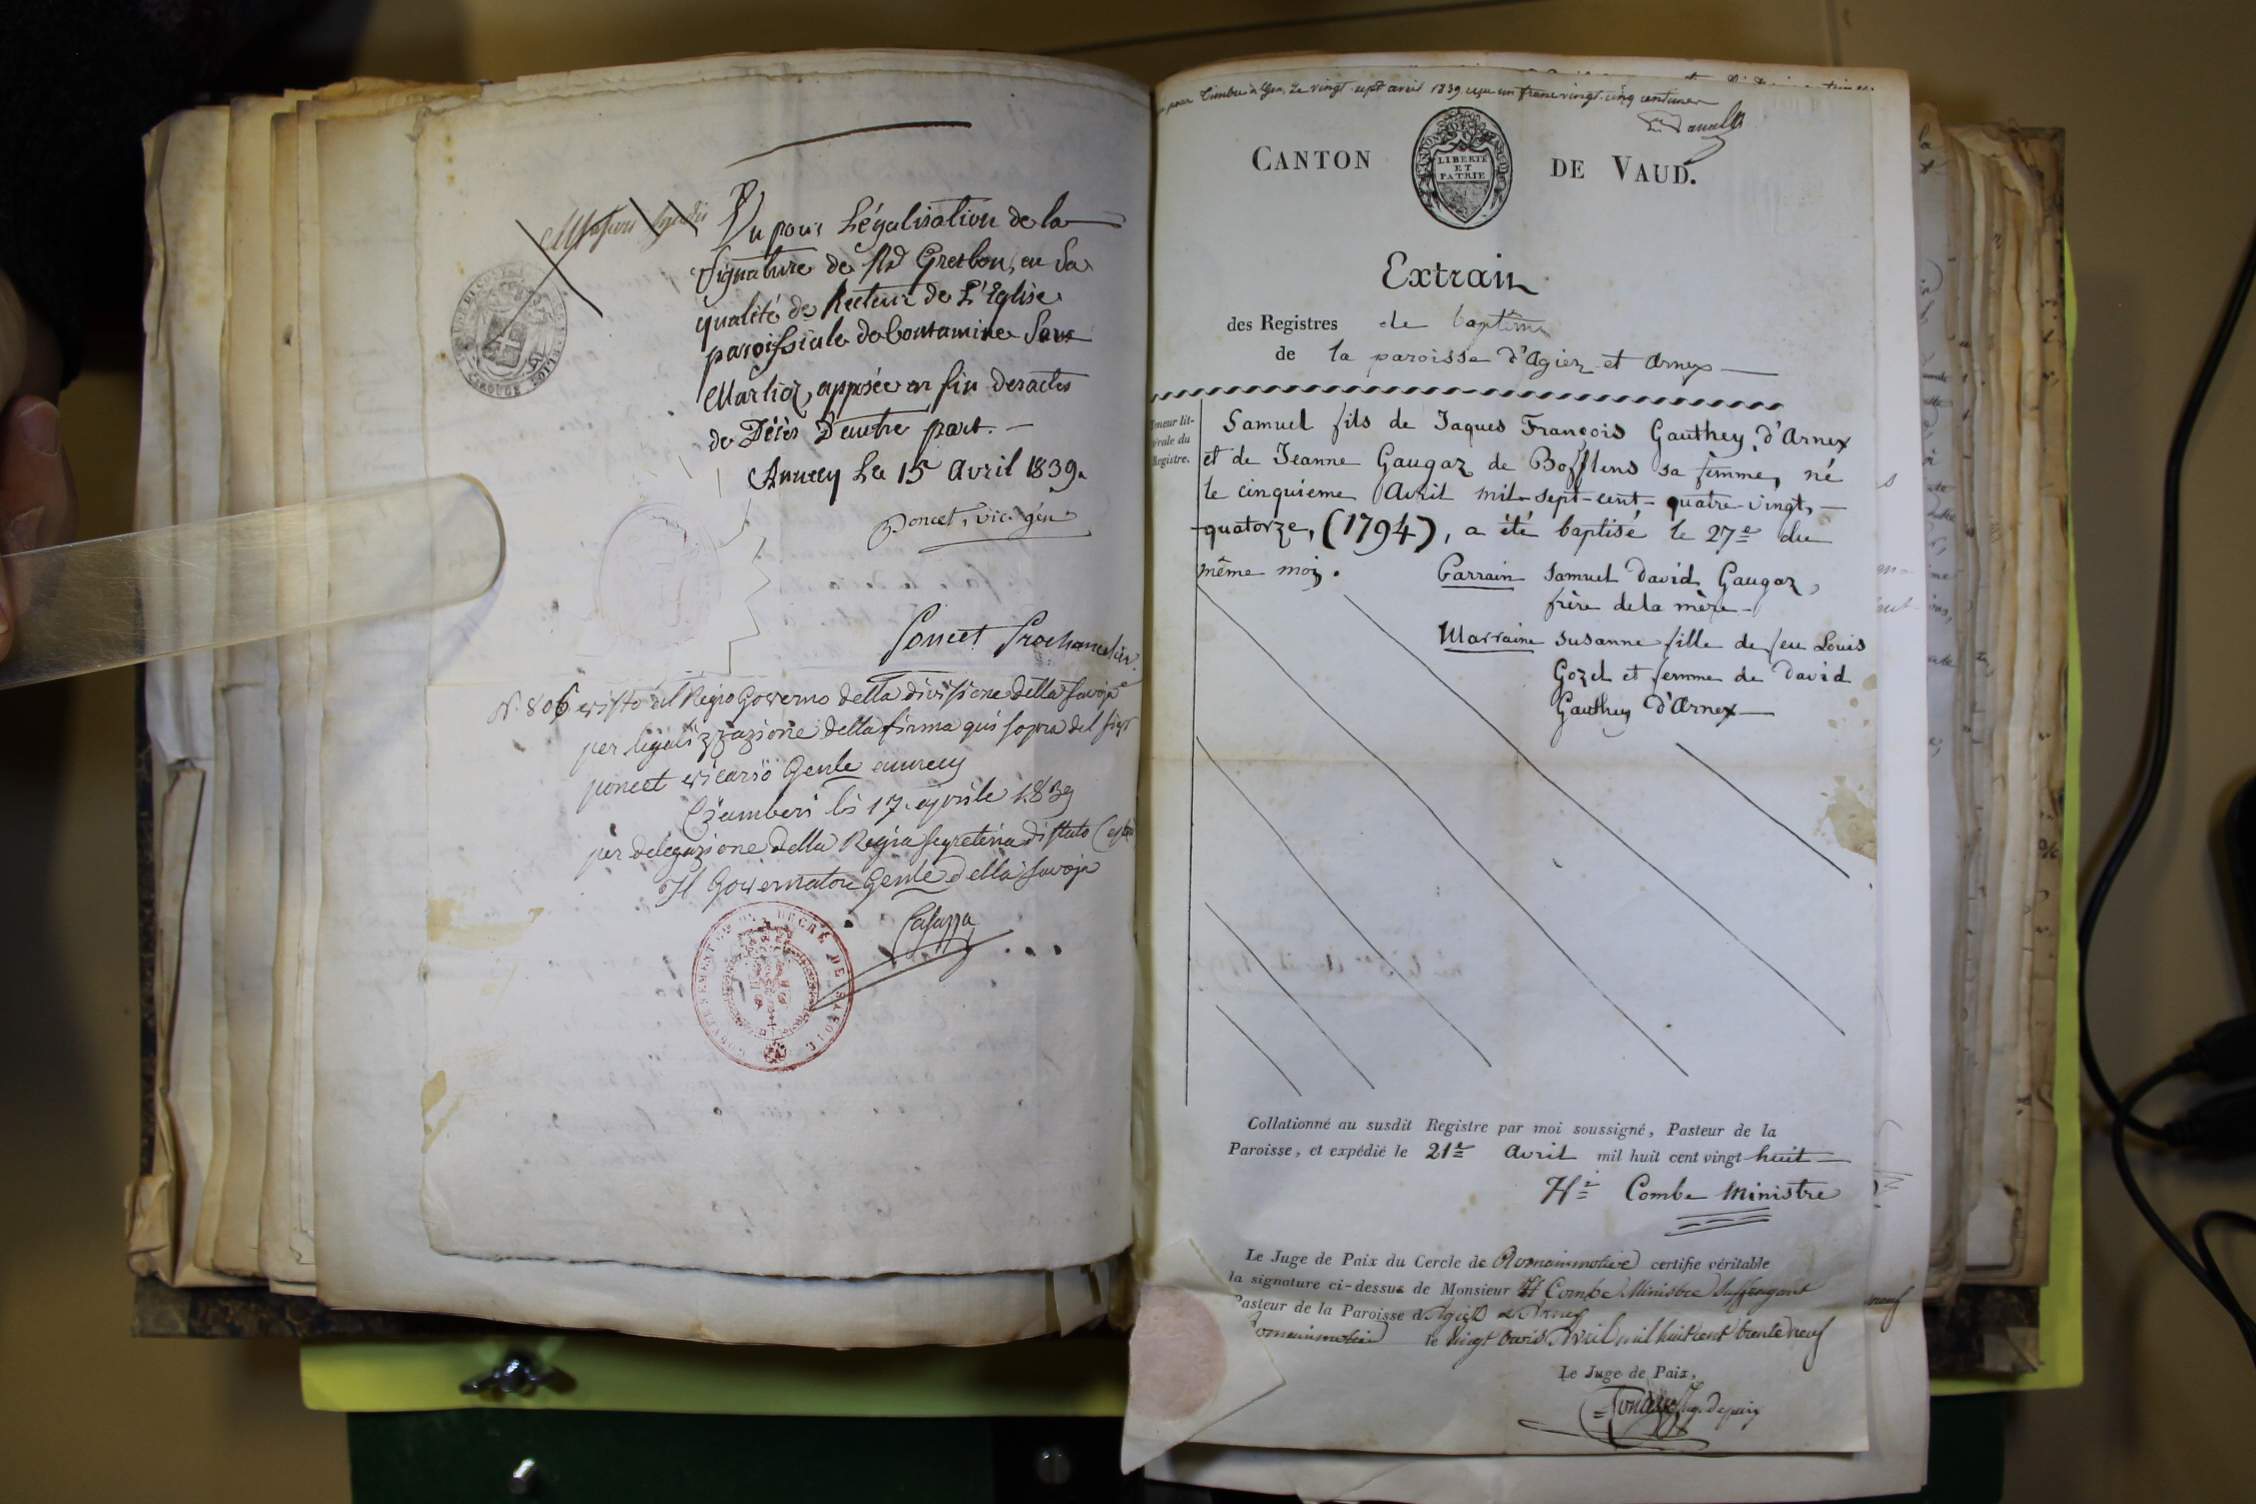 Vu pour Légalisation de la
Signature de Rd Grerbon, en Sa
qualité de Recteur de L'Eglise
paroissiale de Contamine Sous
Marlioz, apposée en fin des actes
de Décès D'autre part. —
Annecy Le 15 avril 1839.
Poncet, vic. gén
Poncet Prochancelier
N. 806 visto dal Regio Governo della divisione della Savoja
per legalizzazione della firma qui sopra del sigr
poncet vicario Genle annecy
Ciamberi li 17 aprile 1839
per delegazione della Regia Segreteria di stato
Il Governatore Genle della Savoja
Casazza
GOUVERNEMENT DU DUCHÉ DE SAVOIE
pour Timbre à Gex, Le vingt sept avril 1839 reçu un franc vingt-cinq centimes
CANTON DE VAUD.
LIBERTÉ
ET
PATRIE
Extrait
des Registres de baptême
de la paroisse d'Agiez et Arnex —
Teneur lit-
térale du
Registre.
Samuel fils de Jaques François Gauthey, d'Arnex
et de Jeanne Gaugaz de Bofflens sa femme, né
le cinquieme Avril mil-sept-cent-quatre-vingt-
quatorze, (1794), a été baptisé le 27e du
même mois.
Parrain Samuel David Gaugaz,
frère de la mère —
Marraine Susanne fille de feu Louis
Gozel et femme de David
Gauthey d'Arnex —
Collationné au susdit Registre par moi soussigné, Pasteur de la
Paroisse, et expédié le 21e Avril mil huit cent vingt huit —
Hi Combe Ministre
Le Juge de Paix du Cercle de Romainmotier certifie véritable
la signature ci-dessus de Monsieur H Combe Ministre Suffragant
Pasteur de la Paroisse d'Agiez et Arnex
Romainmotier le vingt trois Avril mil huit cent trente neuf
Le Juge de Paix,
Jug. de paix